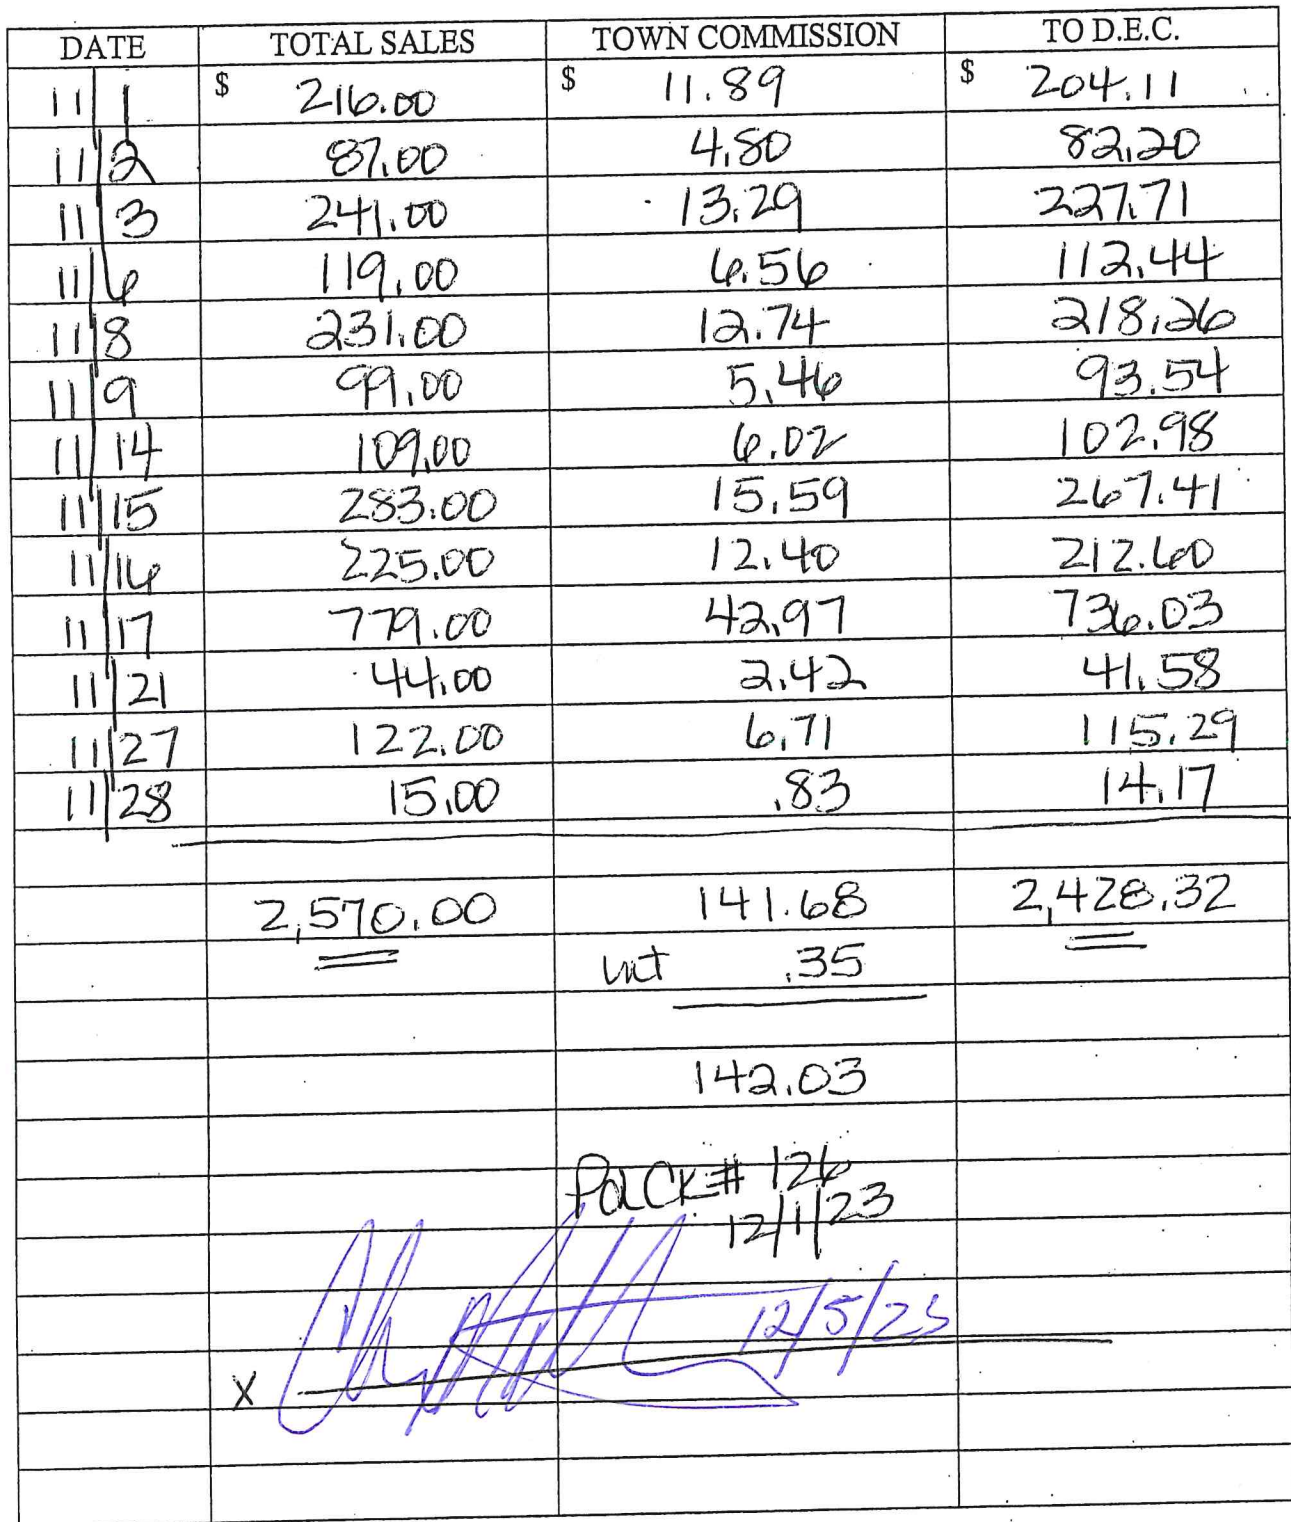 DATE TOTAL SALES TOWN COMMISSION TO D.E.C.
11/1 $ 216.00 $ 11.89 $ 204.11
11/2 87.00 4.80 82.20
11/3 241.00 13.29 227.71
11/6 119.00 6.56 112.44
11/8 231.00 12.74 218.26
11/9 99.00 5.46 93.54
11/14 109.00 6.02 102.98
11/15 283.00 15.59 267.41
11/16 225.00 12.40 212.60
11/17 779.00 42.97 736.03
11/21 44.00 2.42 41.58
11/27 122.00 6.71 115.29
11/28 15.00 .83 14.17
2,570.00 141.68 2,428.32
int .35
142.03
Pd CK# 126
12/1/23
12/5/23
X